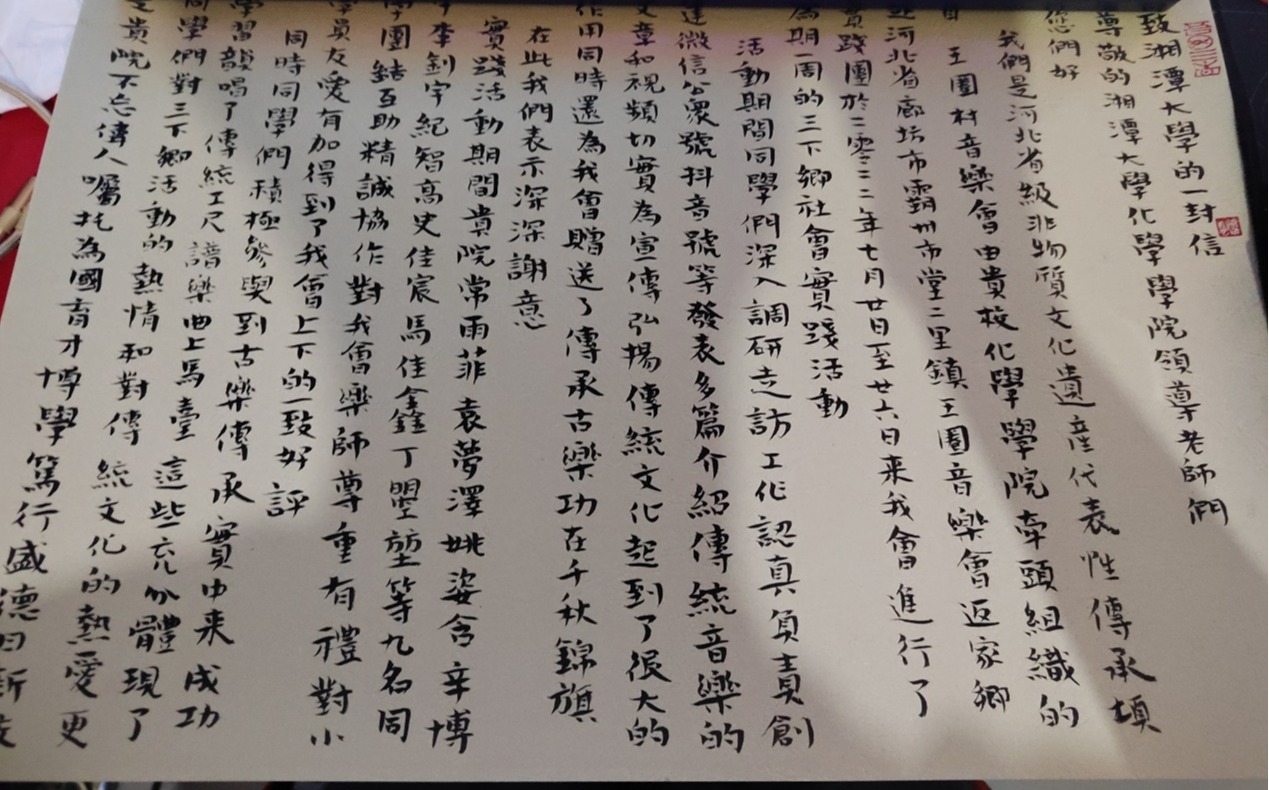 致湘潭大學的一封信
尊敬的湘潭大學化學學院領導老師們
您們好
我們是河北省級非物質文化遺產代表性傳承項
目王圈村音樂會由貴校化學學院牽頭組織的
河北省廊坊市霸州市堂二里鎮王圈音樂會返家鄉
實踐團於二零二二年七月廿日至廿六日來我會進行了
為期一周的三下鄉社會實踐活動
活動期間同學們深入調研走訪工化認真負責創
建微信公衆號抖音號等發表多篇介紹傳統音樂的
文章和視頻切實為宣傳弘揚傳統文化起到了很大的
作用同時還為我會贈送了傳承古樂功在千秋錦旗
在此我們表示深深謝意
實踐活動期間貴院常雨菲袁夢澤姚姿含辛博
李釗宇紀智高史佳宸馬佳鑫丁堃等九名同
學團結互助精誠協作對我會樂師尊重有禮對小
學員友愛有加得到了我會上下的一致好評
同時同學們積極參與到古樂傳承實由來成功
學習韻唱了傳統工尺譜樂曲上馬臺這些充分體現了
同學們對三下鄉活動的熱情和對傳統文化的熱愛更
是貴院不忘偉人囑托為國育才博學篤行盛德日新